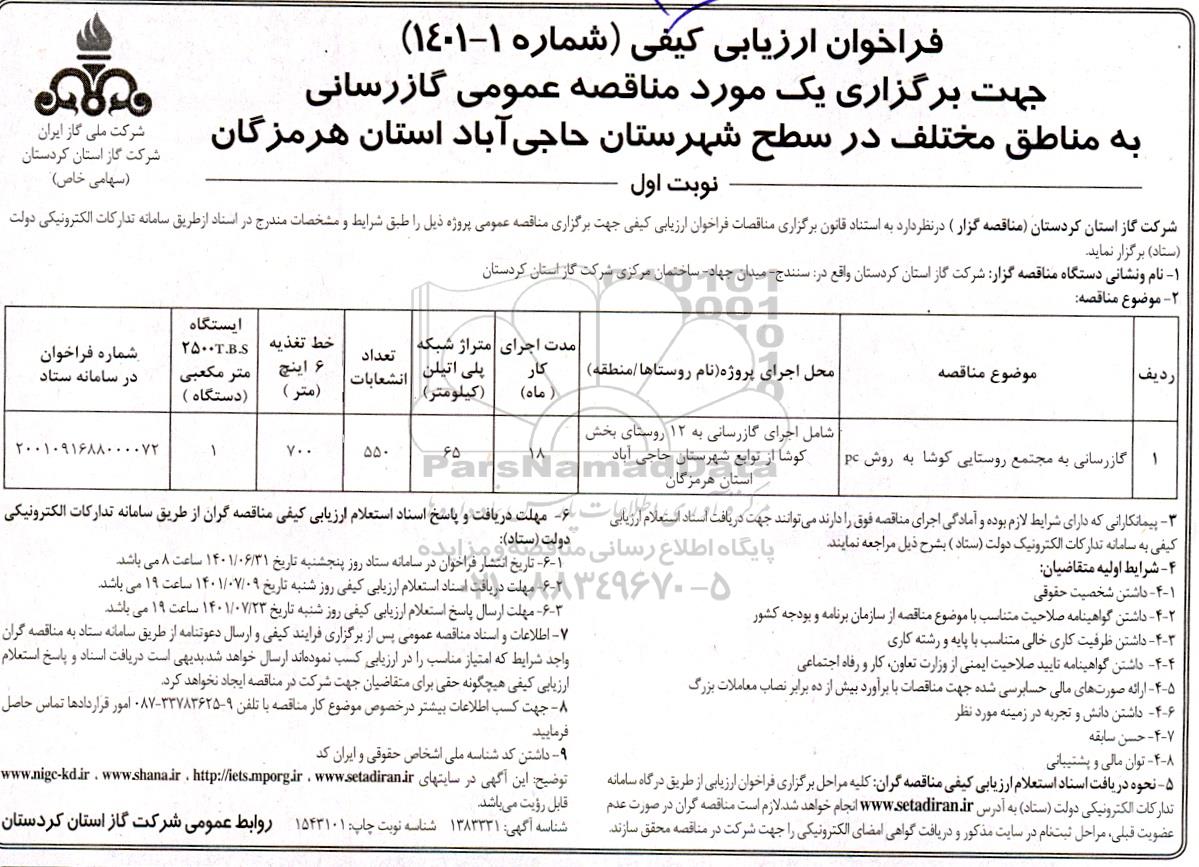 فراخوان ارزیابی کیفی (شماره ۱-۱۴۰۱)
جهت برگزاری یک مورد مناقصه عمومی گازرسانی
به مناطق مختلف در سطح شهرستان حاجی‌آباد استان هرمزگان
نوبت اول
شرکت ملی گاز ایران
شرکت گاز استان کردستان
(سهامی خاص)
شرکت گاز استان کردستان (مناقصه گزار ) درنظردارد به استناد قانون برگزاری مناقصات فراخوان ارزیابی کیفی جهت برگزاری مناقصه عمومی پروژه ذیل را طبق شرایط و مشخصات مندرج در اسناد ازطریق سامانه تدارکات الکترونیکی دولت
(ستاد) برگزار نماید.
۱- نام ونشانی دستگاه مناقصه گزار: شرکت گاز استان کردستان واقع در: سنندج- میدان جهاد- ساختمان مرکزی شرکت گاز استان کردستان
۲- موضوع مناقصه:
ردیف
موضوع مناقصه
محل اجرای پروژه(نام روستاها/منطقه)
مدت اجرای
کار
( ماه)
متراژ شبکه
پلی اتیلن
(کیلومتر)
تعداد
انشعابات
خط تغذیه
۶ اینچ
(متر )
ایستگاه
۲۵۰۰T.B.S
متر مکعبی
(دستگاه )
شماره فراخوان
در سامانه ستاد
۱
گازرسانی به مجتمع روستایی کوشا به روش pc
شامل اجرای گازرسانی به ۱۲ روستای بخش
کوشا از توابع شهرستان حاجی آباد
استان هرمزگان
۱۸
۶۵
۵۵۰
۷۰۰
۱
۲۰۰۱۰۹۱۶۸۸۰۰۰۰۷۲
۳- پیمانکارانی که دارای شرایط لازم بوده و آمادگی اجرای مناقصه فوق را دارند می‌توانند جهت دریافت اسناد استعلام ارزیابی
کیفی به سامانه تدارکات الکترونیک دولت (ستاد ) بشرح ذیل مراجعه نمایند.
۴- شرایط اولیه متقاضیان:
۴-۱- داشتن شخصیت حقوقی
۴-۲- داشتن گواهینامه صلاحیت متناسب با موضوع مناقصه از سازمان برنامه و بودجه کشور
۴-۳- داشتن ظرفیت کاری خالی متناسب با پایه و رشته کاری
۴-۴- داشتن گواهینامه تایید صلاحیت ایمنی از وزارت تعاون، کار و رفاه اجتماعی
۴-۵- ارائه صورت‌های مالی حسابرسی شده جهت مناقصات با برآورد بیش از ده برابر نصاب معاملات بزرگ
۴-۶- داشتن دانش و تجربه در زمینه مورد نظر
۴-۷- حسن سابقه
۴-۸- توان مالی و پشتیبانی
۵- نحوه دریافت اسناد استعلام ارزیابی کیفی مناقصه گران: کلیه مراحل برگزاری فراخوان ارزیابی از طریق درگاه سامانه
تدارکات الکترونیکی دولت (ستاد) به آدرس www.setadiran.ir انجام خواهد شد.لازم است مناقصه گران در صورت عدم
عضویت قبلی، مراحل ثبت‌نام در سایت مذکور و دریافت گواهی امضای الکترونیکی را جهت شرکت در مناقصه محقق سازند.
۶- مهلت دریافت و پاسخ اسناد استعلام ارزیابی کیفی مناقصه گران از طریق سامانه تدارکات الکترونیکی
دولت (ستاد):
۶-۱- تاریخ انتشار فراخوان در سامانه ستاد روز پنجشنبه تاریخ ۱۴۰۱/۰۶/۳۱ ساعت ۸ می باشد.
۶-۲- مهلت دریافت اسناد استعلام ارزیابی کیفی روز شنبه تاریخ ۱۴۰۱/۰۷/۰۹ ساعت ۱۹ می باشد.
۶-۳- مهلت ارسال پاسخ استعلام ارزیابی کیفی روز شنبه تاریخ ۱۴۰۱/۰۷/۲۳ ساعت ۱۹ می باشد.
۷- اطلاعات و اسناد مناقصه عمومی پس از برگزاری فرایند کیفی و ارسال دعوتنامه از طریق سامانه ستاد به مناقصه گران
واجد شرایط که امتیاز مناسب را در ارزیابی کسب نموده‌اند ارسال خواهد شد.بدیهی است دریافت اسناد و پاسخ استعلام
ارزیابی کیفی هیچگونه حقی برای متقاضیان جهت شرکت در مناقصه ایجاد نخواهد کرد.
۸- جهت کسب اطلاعات بیشتر درخصوص موضوع کار مناقصه با تلفن ۹-۳۳۷۸۳۶۲۵-۰۸۷ امور قراردادها تماس حاصل
فرمایید.
۹- داشتن کد شناسه ملی اشخاص حقوقی و ایران کد
توضیح: این آگهی در سایتهای www.nigc-kd.ir ، www.shana.ir ، http://iets.mporg.ir ، www.setadiran.ir
قابل رؤیت می‌باشد.
شناسه آگهی: ۱۳۸۳۳۳۱ شناسه نوبت چاپ: ۱۵۴۳۱۰۱
روابط عمومی شرکت گاز استان کردستان
ParsNamadData
پایگاه اطلاع رسانی مناقصه و مزایده
۰۲۱-۸۸۳۴۹۶۷۰-۵